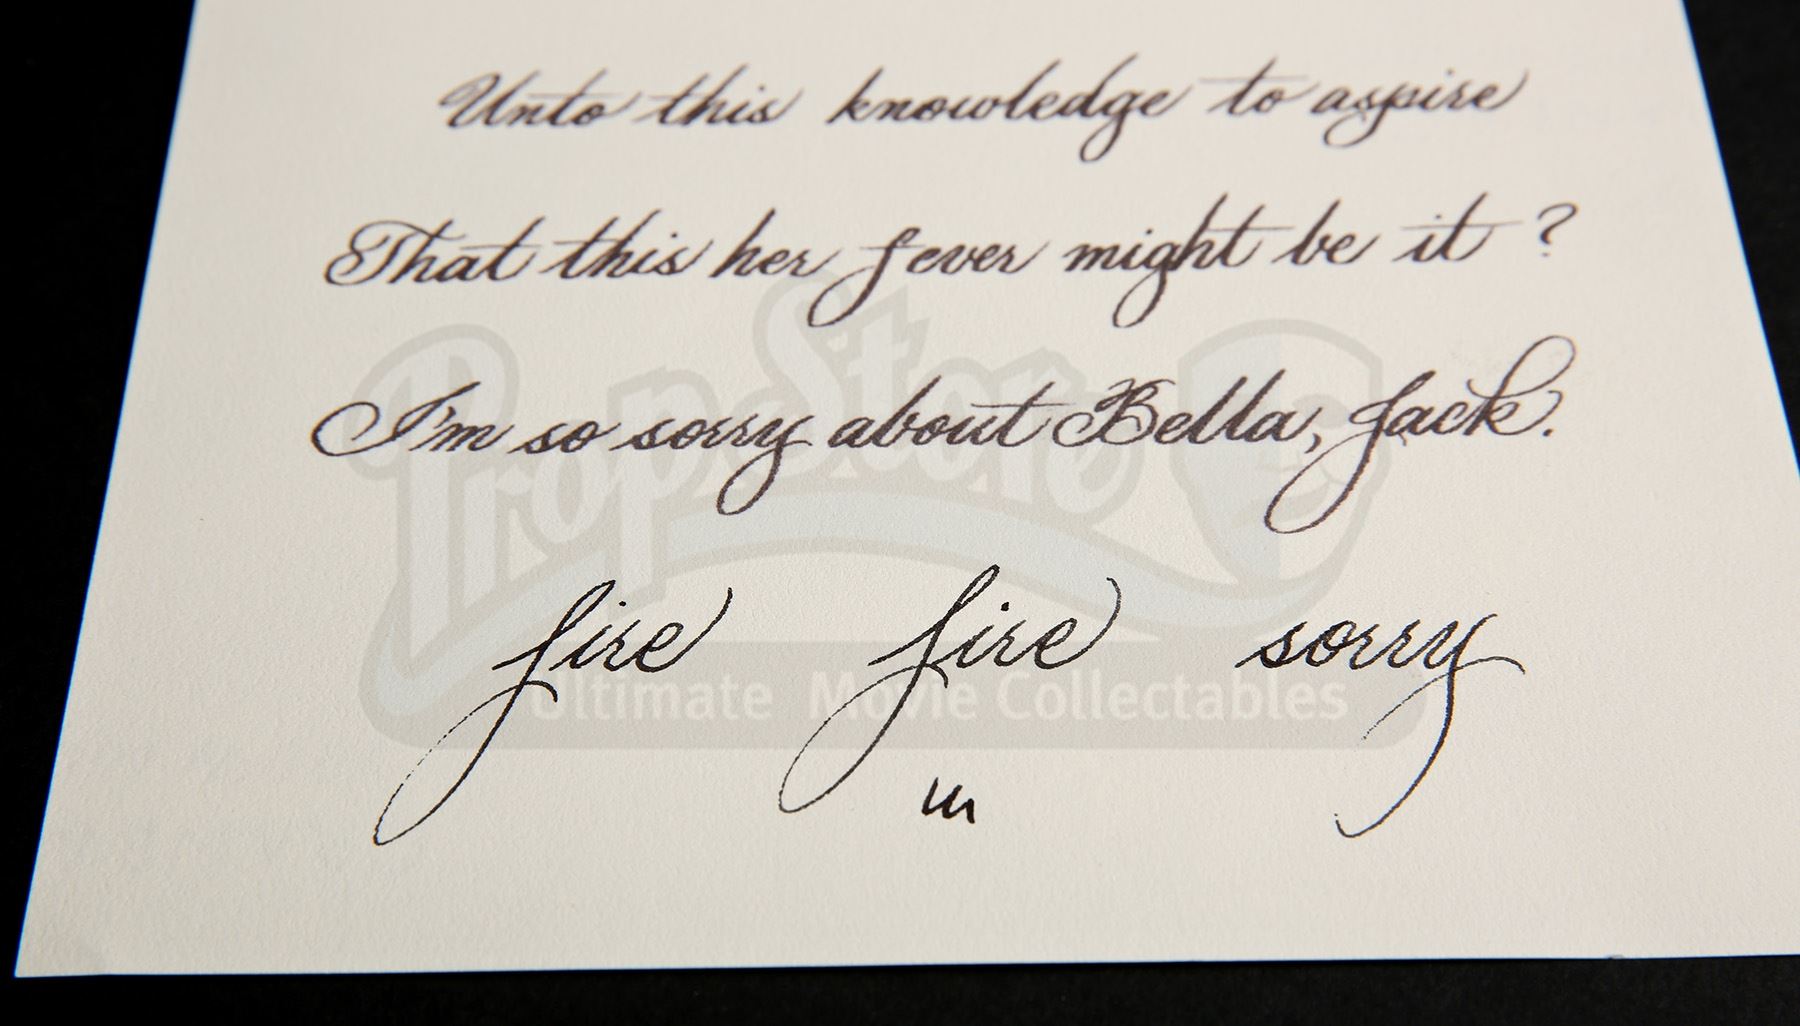 Unto this knowledge to aspire
That this her fever might be it ?
I'm so sorry about Bella, Jack.
fire fire sorry
Prop Store
Ultimate Movie Collectables